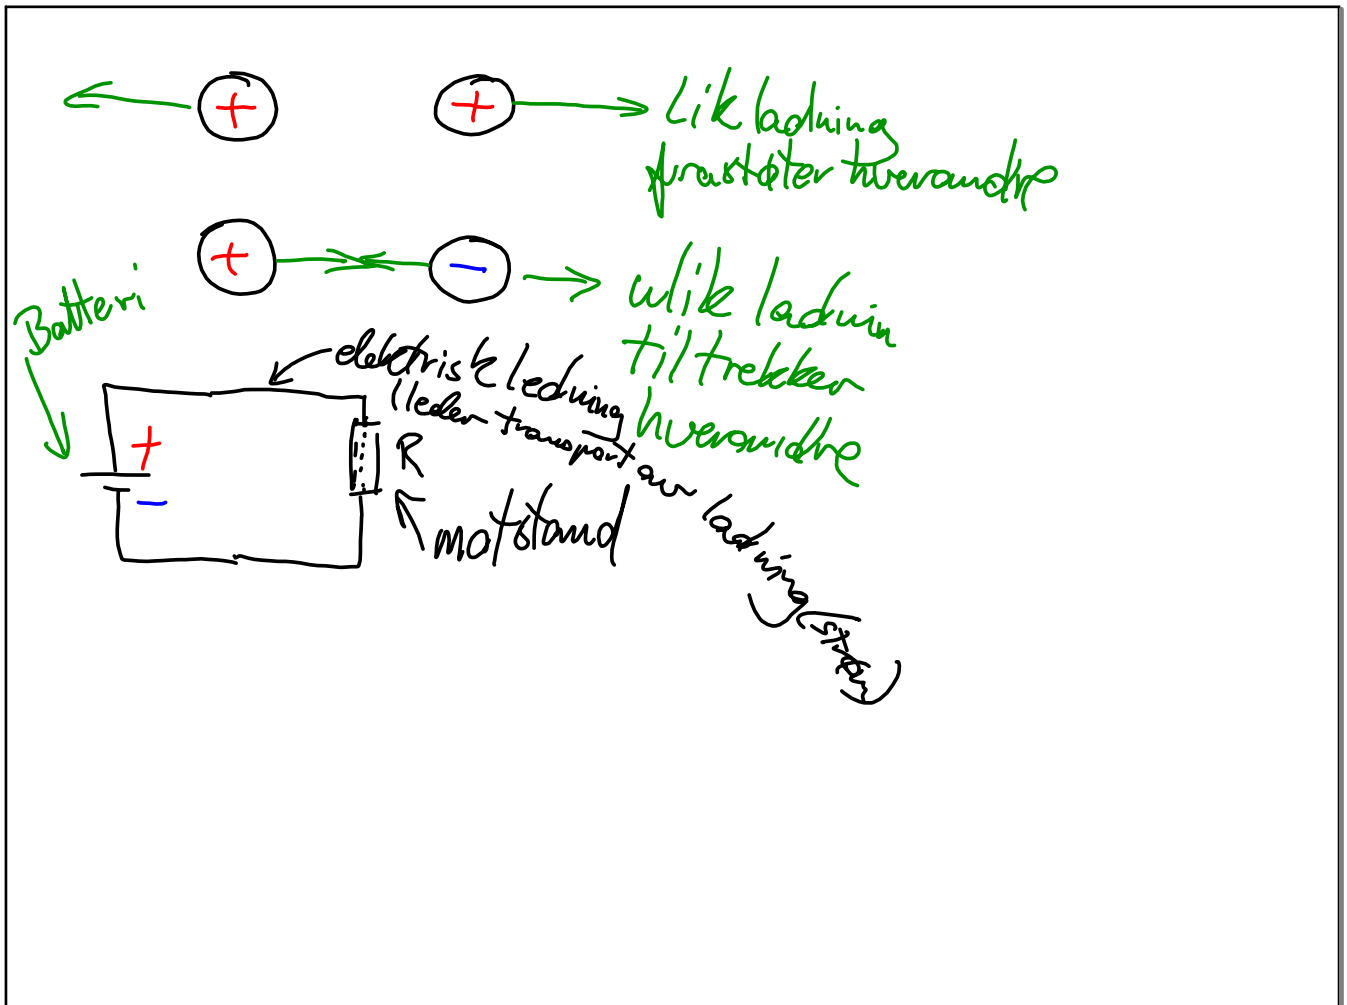 + + Lik ladning
frastøter hverandre
+ − ulik ladnin
tiltrekker
hverandre
Batteri
elektrisk ledning
(leder transport av ladning
(strøm)
+
−
R
motstand